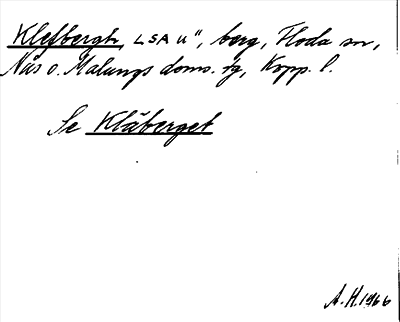 Klefbergh, LSA u", berg, Floda sn,
Nås o. Malungs doms. sg, Kopp. l.
Se Klåberget
A.H. 1966